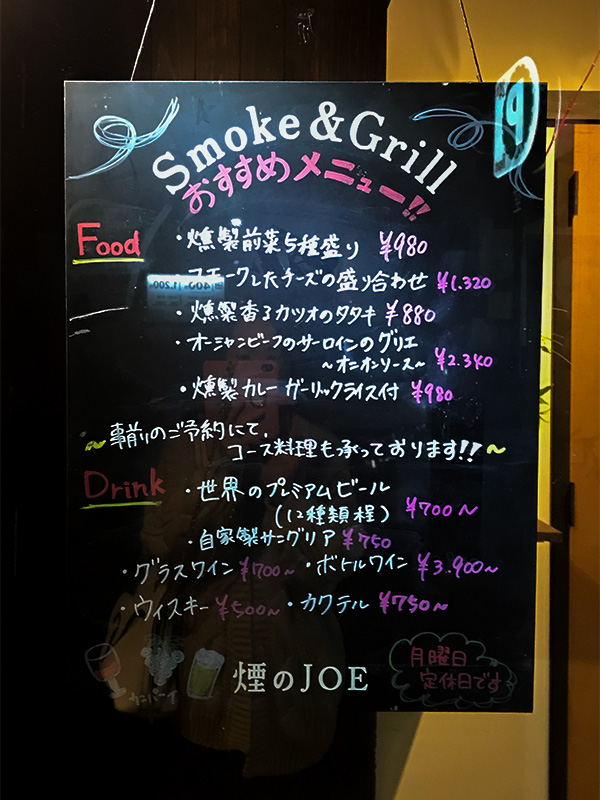 Smoke & Grill
おすすめメニュー!!
Food
・燻製前菜5種盛り ¥980
・スモークしたチーズの盛り合わせ ¥1.320
・燻製香るカツオのタタキ ¥880
・オーシャンビーフのサーロインのグリエ
～オニオンソース～ ¥2.340
・燻製カレー ガーリックライス付 ¥980
～事前のご予約にて、
コース料理も承っております!!～
Drink
・世界のプレミアムビール
(12種類程) ¥700～
・自家製サングリア ¥750
・グラスワイン ¥700～ ・ボトルワイン ¥3.900～
・ウィスキー ¥500～ ・カクテル ¥750～
カンパーイ
煙のJOE
月曜日
定休日です